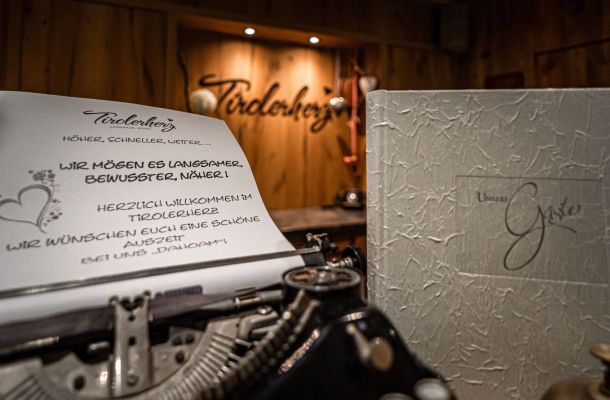 Tirolerherz
Tirolerherz
HÖHER, SCHNELLER, WEITER....
WIR MÖGEN ES LANGSAMER,
BEWUSSTER, NÄHER!
HERZLICH WILLKOMMEN IM
TIROLERHERZ
WIR WÜNSCHEN EUCH EINE SCHÖNE
AUSZEIT
BEI UNS „DAHOAM“!
Unsere
Gäste